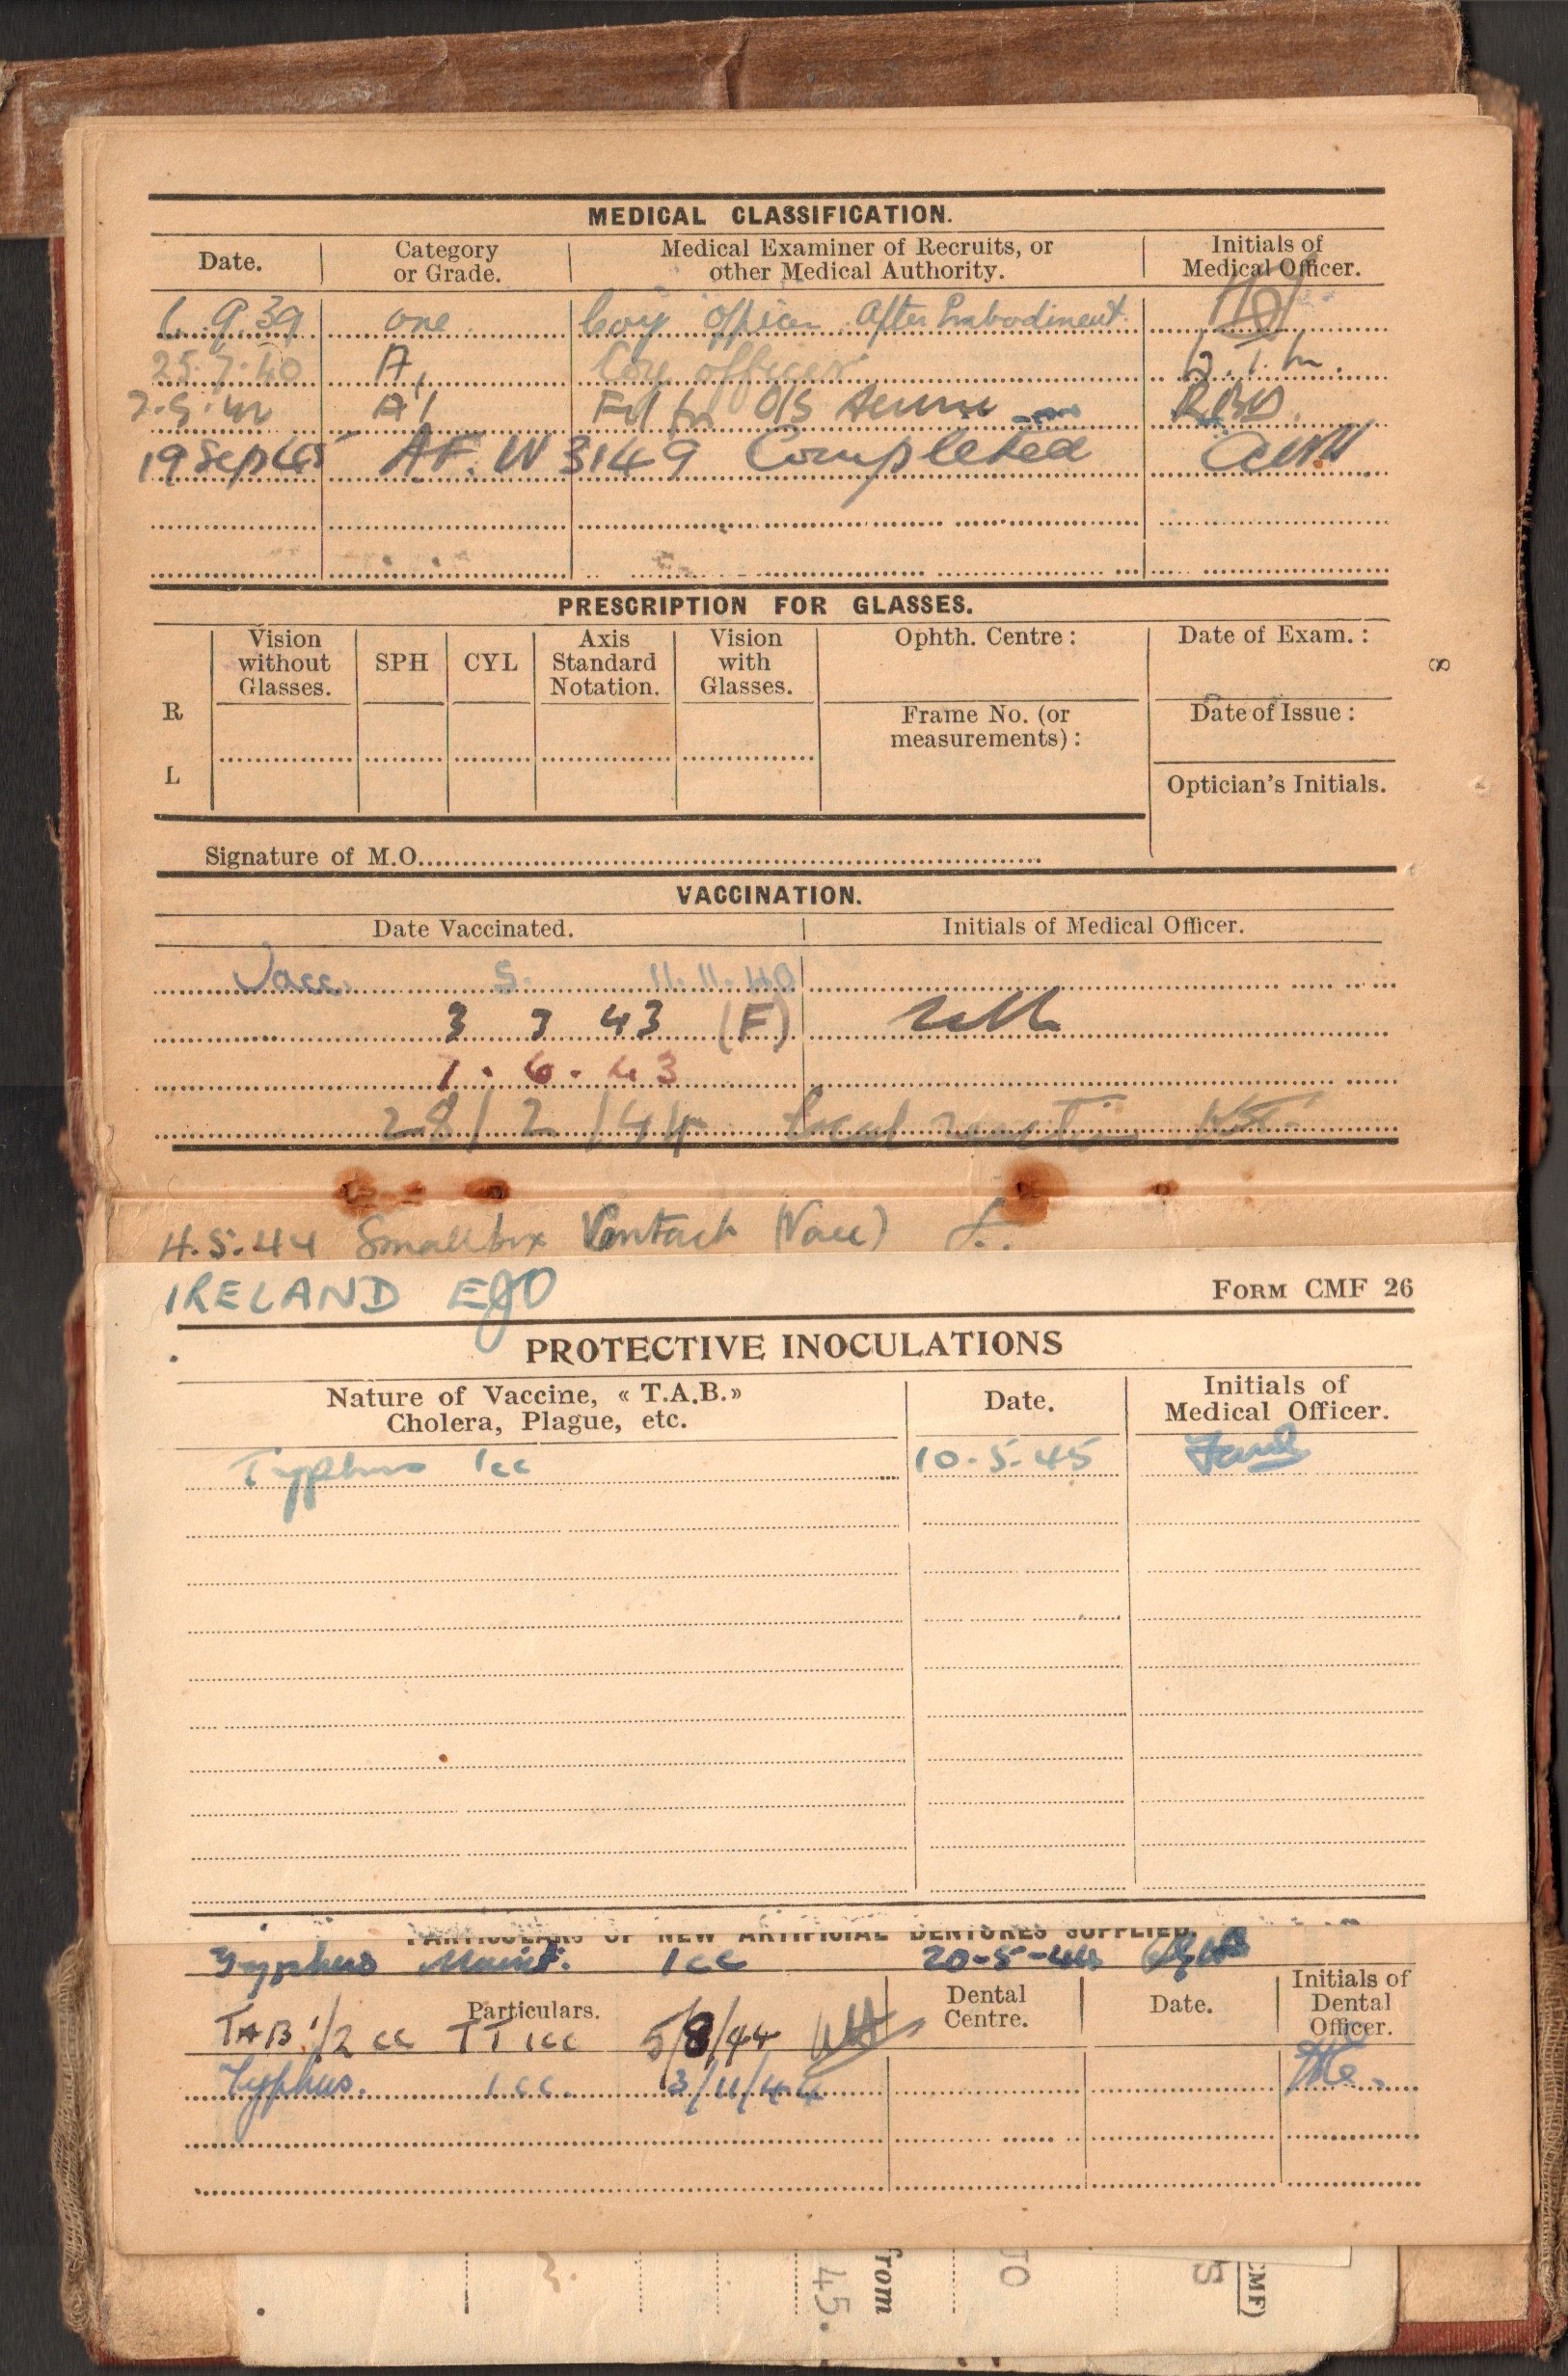 MEDICAL CLASSIFICATION.
Date. Category or Grade. Medical Examiner of Recruits, or other Medical Authority. Initials of Medical Officer.
6.9.39 one Coy officer After Embodiment
25.7.40 A1 Coy officer
A1 O/S
19 Sep 45 AF. W 3149 Completed
PRESCRIPTION FOR GLASSES.
Vision without Glasses. SPH CYL Axis Standard Notation. Vision with Glasses. Ophth. Centre: Date of Exam.:
R
Frame No. (or measurements): Date of Issue:
L
Optician's Initials.
Signature of M.O.
8
VACCINATION.
Date Vaccinated. Initials of Medical Officer.
Vacc. S. 11.11.40
3 7 43 (F)
7.6.43
28/2/44 local reaction
4.5.44 Smallpox Contact (Vacc)
IRELAND EJO FORM CMF 26
PROTECTIVE INOCULATIONS
Nature of Vaccine, « T.A.B.» Cholera, Plague, etc. Date. Initials of Medical Officer.
Typhus 1cc 10.5.45
PARTICULARS OF NEW ARTIFICIAL DENTURES SUPPLIED.
Typhus Maint. 1cc 20-5-44
Particulars. Dental Centre. Date. Initials of Dental Officer.
TAB 1/2 cc TT 1cc 5/8/44
Typhus. 1cc. 3/11/44
45. from TO S CMF)